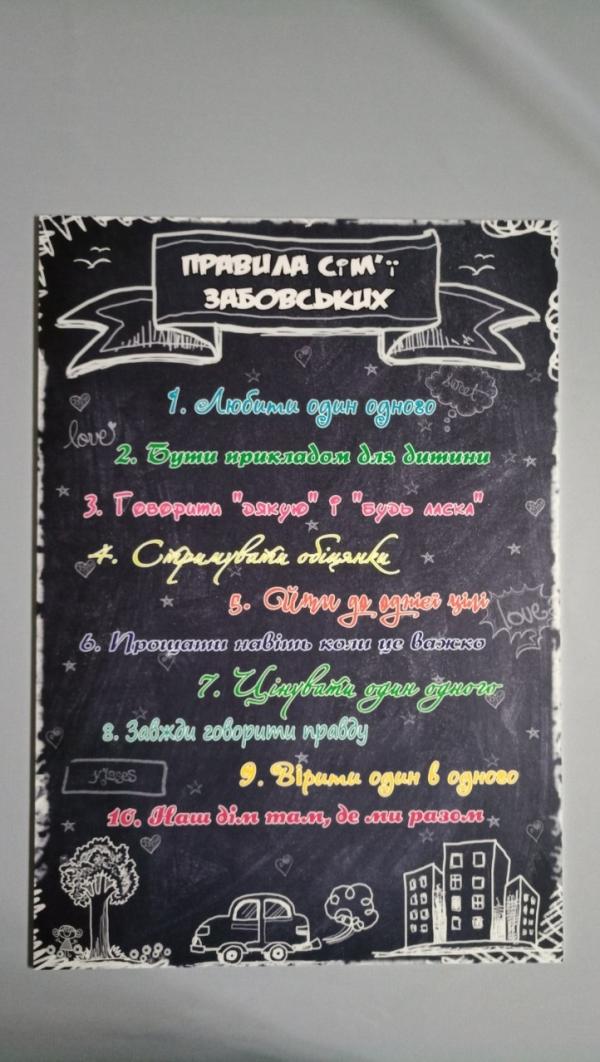 ПРАВИЛА СІМ'Ї
ЗАБОВСЬКИХ
1. Любити один одного
sweet
love
2. Бути прикладом для дитини
3. Говорити "дякую" і "будь ласка"
4. Стримувати обіцянки
5. Йти до однієї цілі
love
6. Прощати навіть коли це важко
7. Цінувати один одного
8. Завжди говорити правду
9. Вірити один в одного
10. Наш дім там, де ми разом